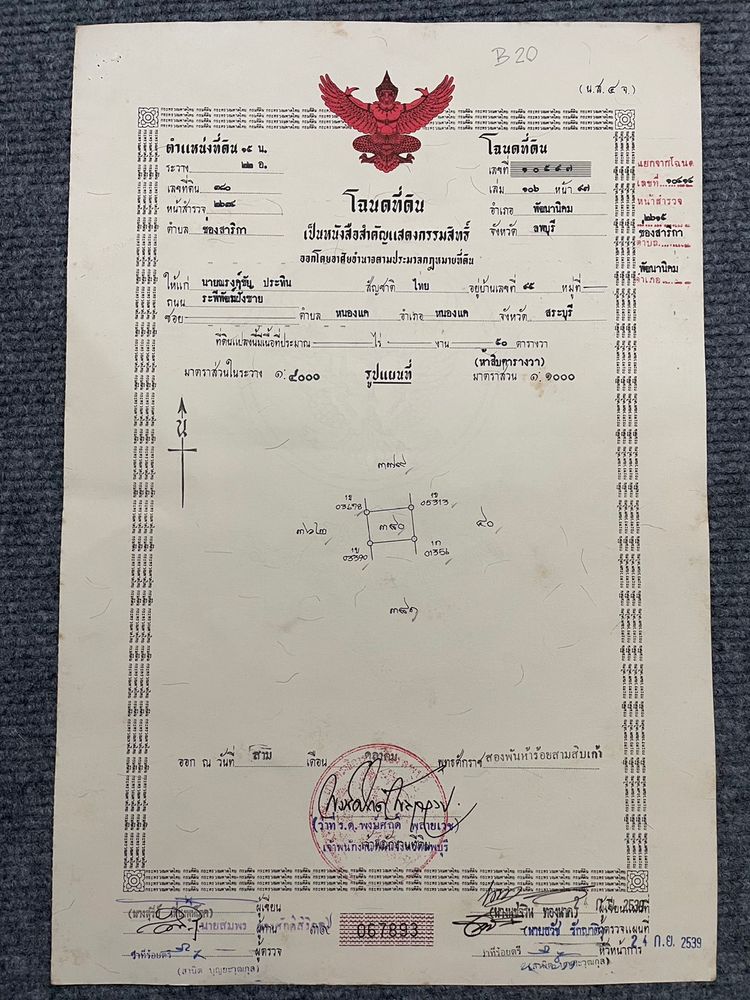 B 20
(น.ส.๔ จ.)
ตำแหน่งที่ดิน ๑๕ น.
ระวาง ๒๒ อ.
เลขที่ดิน ๓๘๐
หน้าสำรวจ
ตำบล ช่องสาริกา
โฉนดที่ดิน
เลขที่ ๑๐๕๙๗
เล่ม ๑๐๖ หน้า ๙๗
อำเภอ พัฒนานิคม
จังหวัด ลพบุรี
แยกจากโฉนด
เลขที่
หน้าสำรวจ
ช่องสาริกา
ตำบล
พัฒนานิคม
อำเภอ
โฉนดที่ดิน
เป็นหนังสือสำคัญแสดงกรรมสิทธิ์
ออกโดยอาศัยอำนาจตามประมวลกฎหมายที่ดิน
ให้แก่ นายณรงค์ชัย ประทิน สัญชาติ ไทย อยู่บ้านเลขที่ ๘๕ หมู่ที่
ถนน ระพีพัฒน์ฝั่งซ้าย
ซอย ตำบล หนองแค อำเภอ หนองแค จังหวัด สระบุรี
ที่ดินแปลงนี้มีเนื้อที่ประมาณ ไร่ งาน ๕๐ ตารางวา
(ห้าสิบตารางวา)
มาตราส่วนในระวาง ๑:๔๐๐๐ รูปแผนที่ มาตราส่วน ๑:๑๐๐๐
น
๓๗๙
03498 05313
๓๖๒ ๓๘๐ ๔๐
03390 01356
๓๘๑
ออก ณ วันที่ สาม เดือน ตุลาคม พุทธศักราช สองพันห้าร้อยสามสิบเก้า
เจ้าพนักงานที่ดิน
ผู้เขียน
นายสมพร
ผู้ตรวจ
ว่าที่ร้อยตรี
(สานิต บุญยะวุฒกุล)
067893
ผู้ตรวจแผนที่
หัวหน้าการ
24 ก.ย. 2539
ว่าที่ร้อยตรี